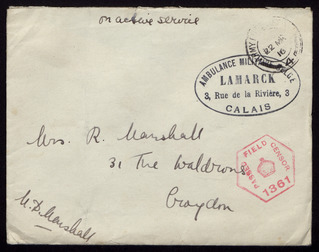 on active service
22 MR
16
4
AMBULANCE MILITAIRE BELGE
LAMARCK
3, Rue de la Rivière, 3
CALAIS
Mrs. R. Marshall
31 The Waldrons
Croydon
PASSED
FIELD CENSOR
1361
M. D. Marshall